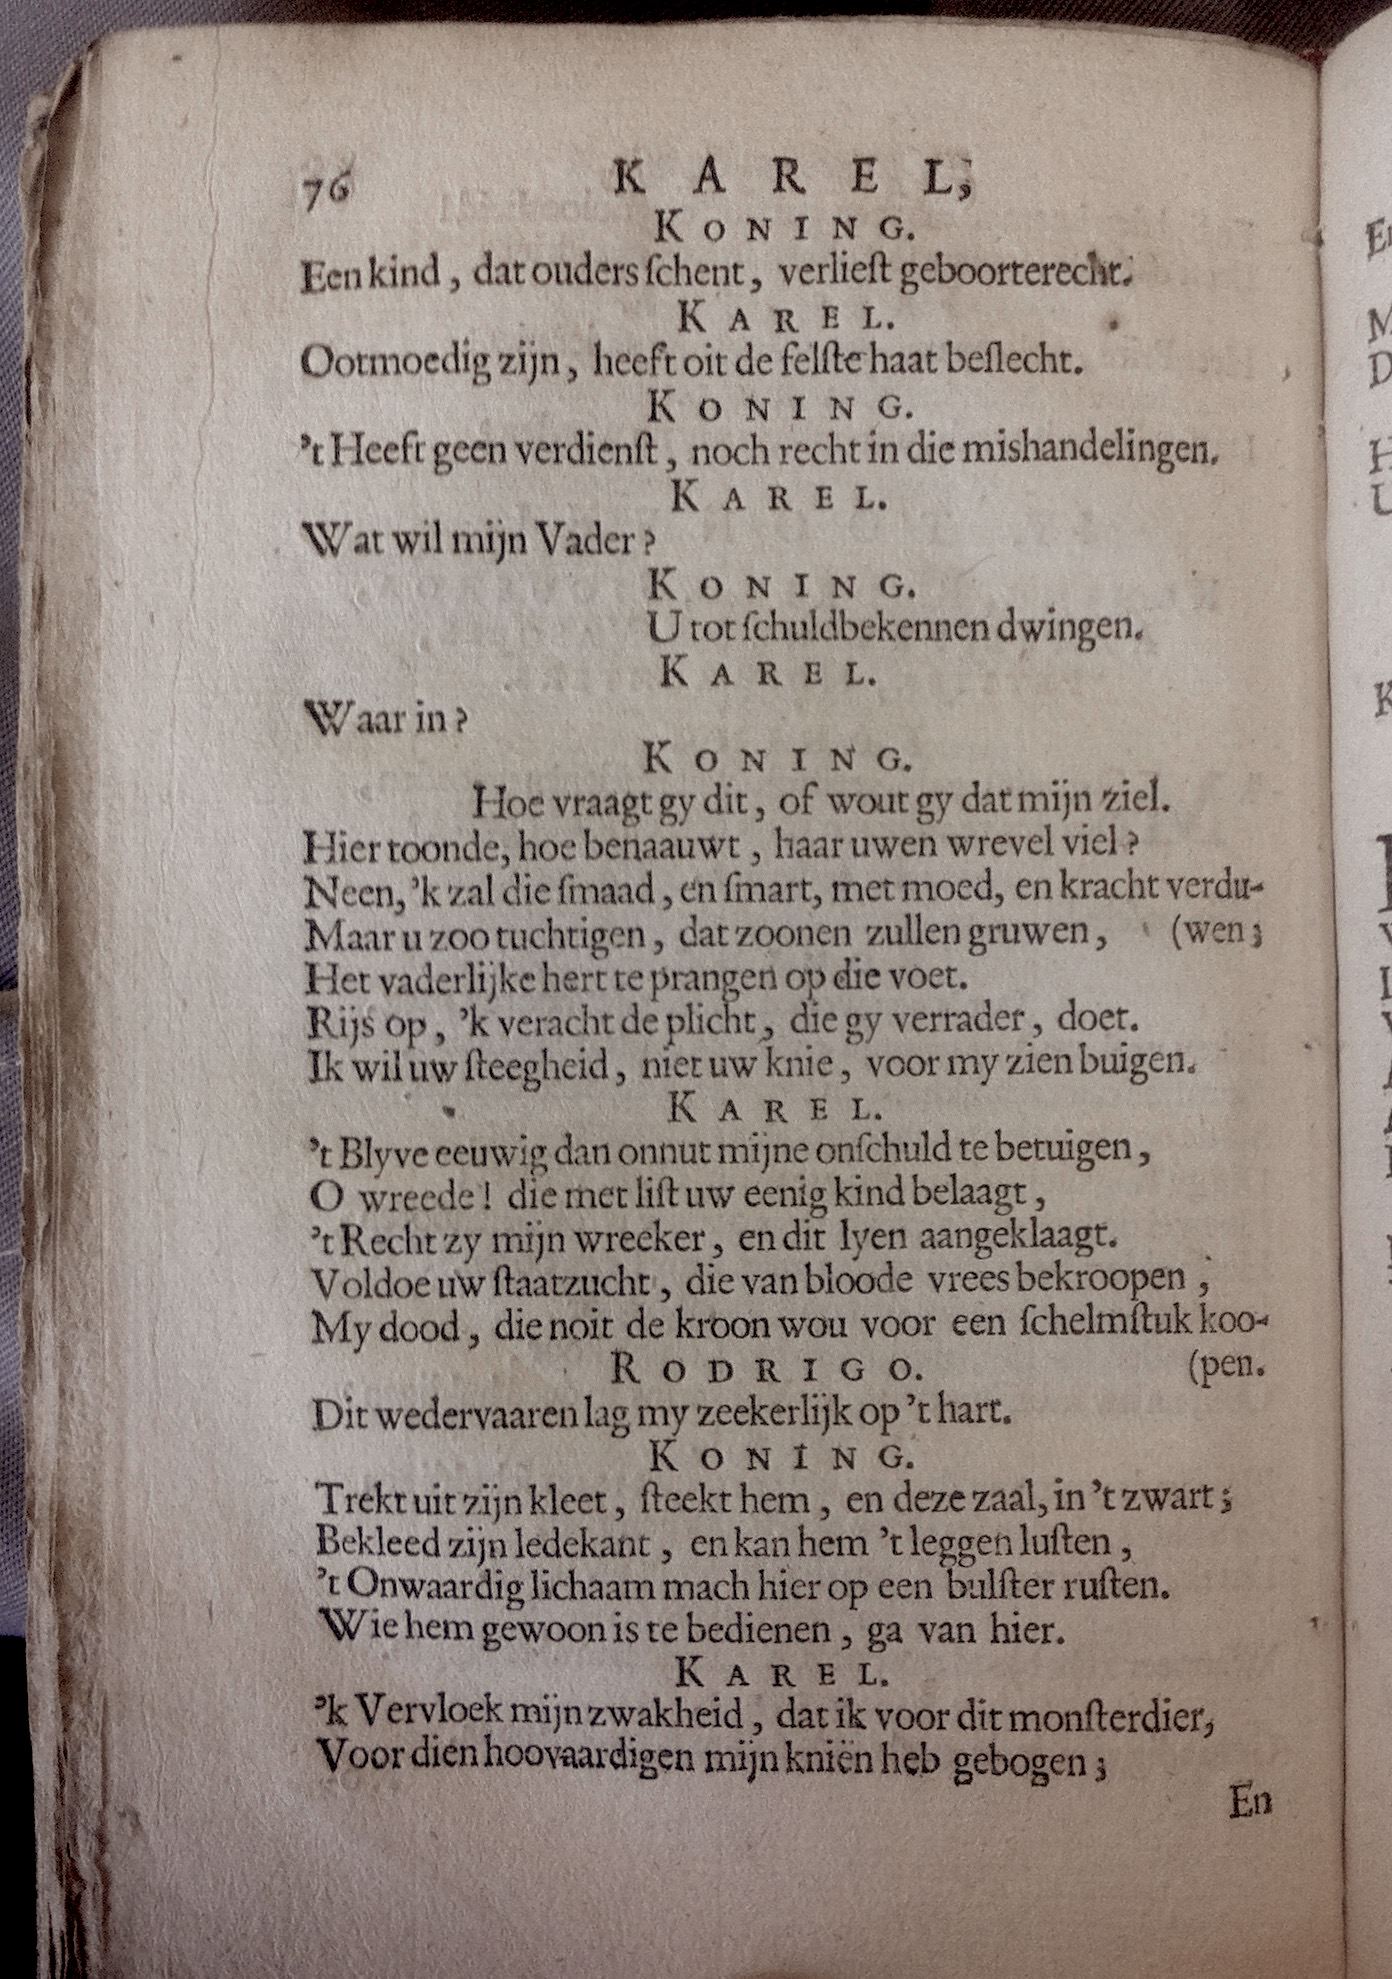 76 KAREL,
KONING.
Een kind, dat ouders ſchent, verlieſt geboorterecht.
KAREL.
Ootmoedig zijn, heeft oit de felſte haat beſlecht.
KONING.
't Heeft geen verdienſt, noch recht in die mishandelingen.
KAREL.
Wat wil mijn Vader?
KONING.
U tot ſchuldbekennen dwingen.
KAREL.
Waar in?
KONING.
Hoe vraagt gy dit, of wout gy dat mijn ziel.
Hier toonde, hoe benaauwt, haar uwen wrevel viel?
Neen, 'k zal die ſmaad, en ſmart, met moed, en kracht verdu-
Maar u zoo tuchtigen, dat zoonen zullen gruwen, (wen;
Het vaderlijke hert te prangen op die voet.
Rijs op, 'k veracht de plicht, die gy verrader, doet.
Ik wil uw ſteegheid, niet uw knie, voor my zien buigen.
KAREL.
't Blyve eeuwig dan onnut mijne onſchuld te betuigen,
O wreede! die met liſt uw eenig kind belaagt,
't Recht zy mijn wreeker, en dit lyen aangeklaagt.
Voldoe uw ſtaatzucht, die van bloode vrees bekroopen,
My dood, die noit de kroon wou voor een ſchelmſtuk koo-
RODRIGO. (pen.
Dit wedervaaren lag my zeekerlijk op 't hart.
KONING.
Trekt uit zijn kleet, ſteekt hem, en deze zaal, in 't zwart;
Bekleed zijn ledekant, en kan hem 't leggen luſten,
't Onwaardig lichaam mach hier op een bulſter ruſten.
Wie hem gewoon is te bedienen, ga van hier.
KAREL.
'k Vervloek mijn zwakheid, dat ik voor dit monſterdier,
Voor dien hoovaardigen mijn kniën heb gebogen;
En